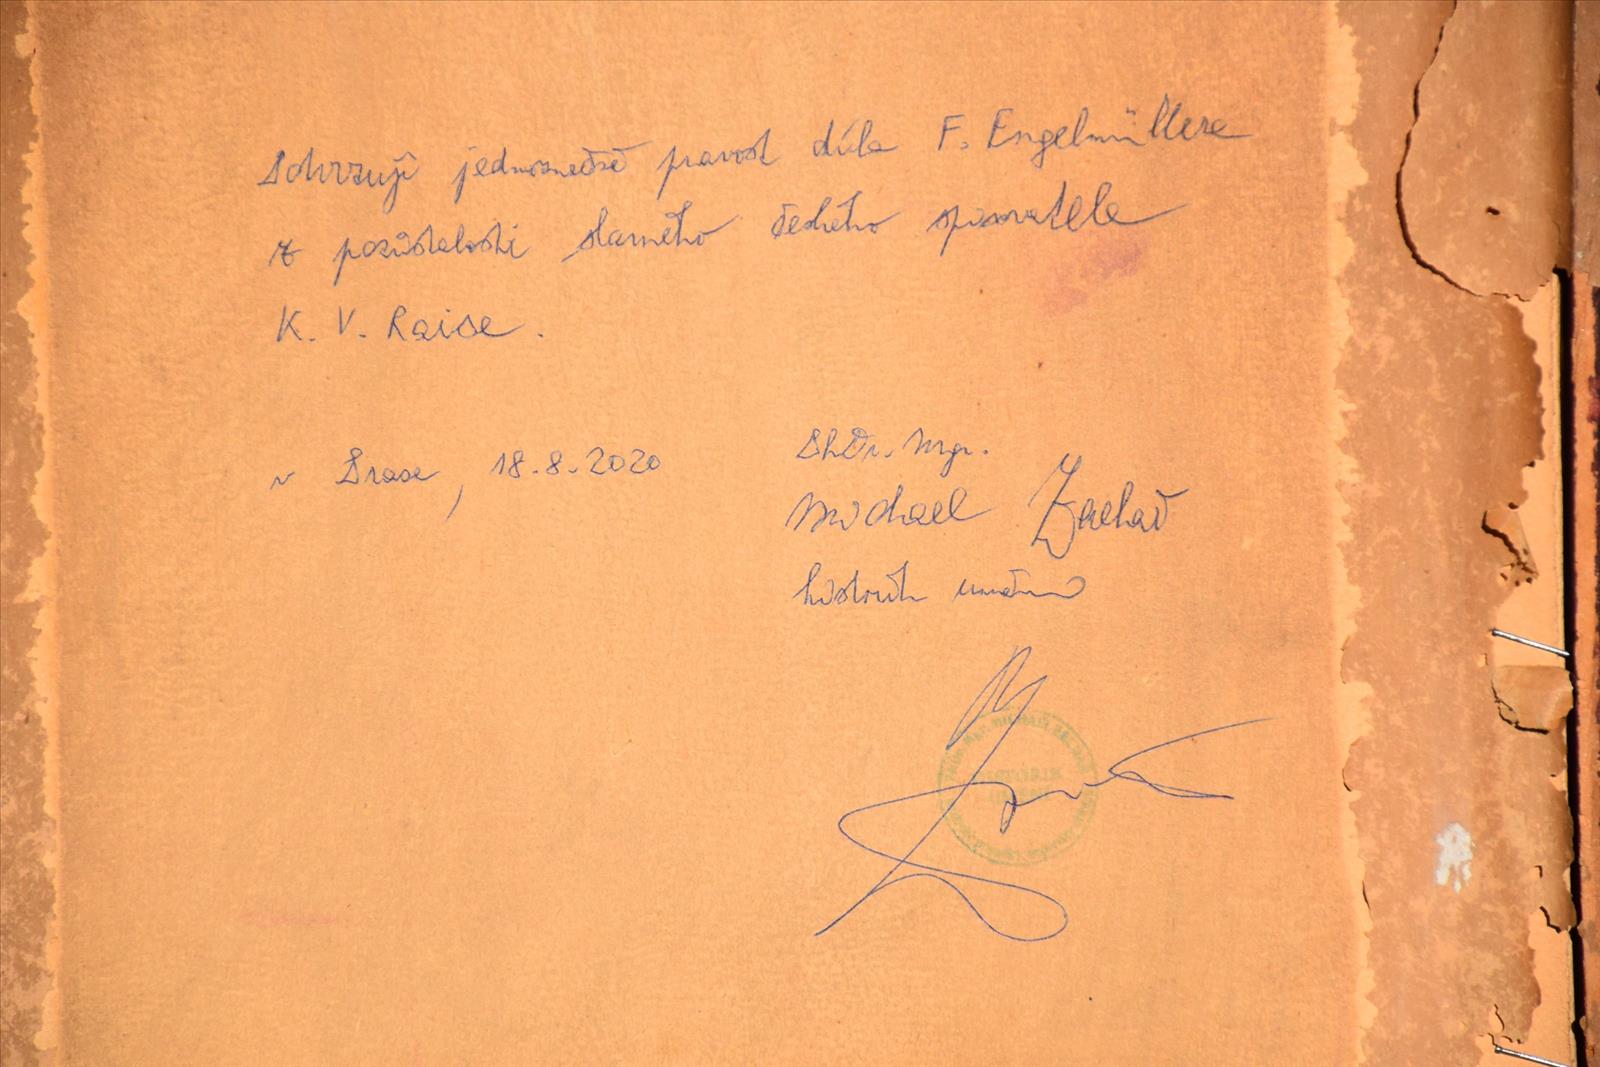 Potvrzuji jednoznačně pravost díla F. Engelmüllera
z pozůstalosti slavného českého spisovatele
K. V. Raise.
v Praze, 18.8.2020
PhDr. Mgr.
Michael Zachař
historik umění
HISTORIK